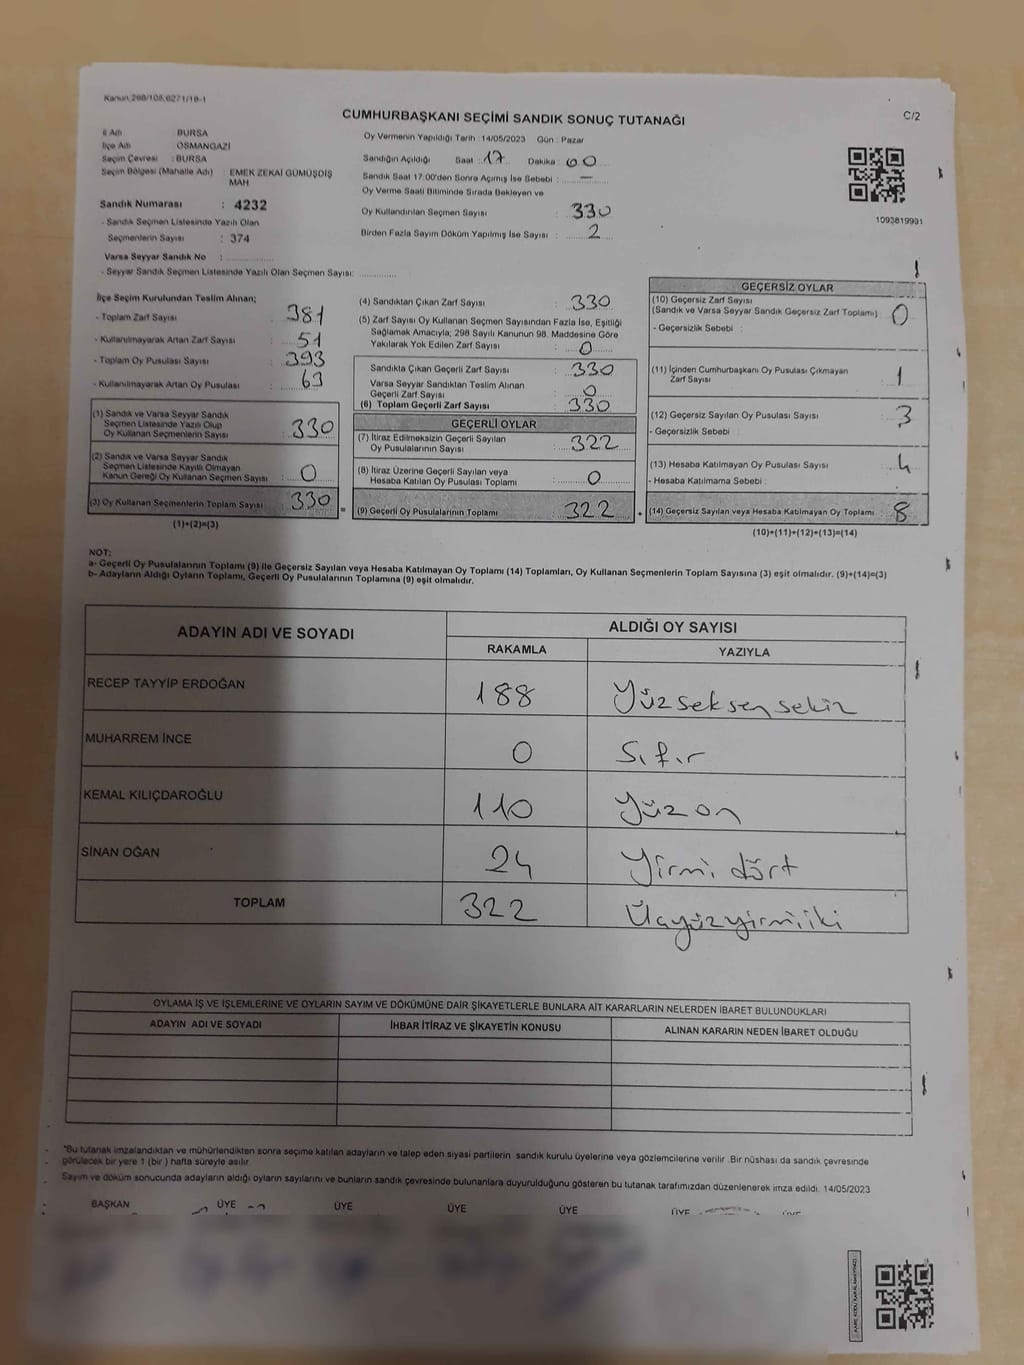 Kanun 298/105,6271/18-1
CUMHURBAŞKANI SEÇİMİ SANDIK SONUÇ TUTANAĞI
C/2
İl Adı : BURSA
İlçe Adı : OSMANGAZİ
Seçim Çevresi : BURSA
Seçim Bölgesi (Mahalle Adı) : EMEK ZEKAİ GÜMÜŞDİŞ
MAH
Sandık Numarası : 4232
- Sandık Seçmen Listesinde Yazılı Olan
Seçmenlerin Sayısı : 374
Varsa Seyyar Sandık No :
- Seyyar Sandık Seçmen Listesinde Yazılı Olan Seçmen Sayısı:
Oy Vermenin Yapıldığı Tarih : 14/05/2023 Gün : Pazar
Sandığın Açıldığı Saat : 17 Dakika : 00
Sandık Saat 17:00'den Sonra Açılmış İse Sebebi : —
Oy Verme Saati Bitiminde Sırada Bekleyen ve
Oy Kullandırılan Seçmen Sayısı : 330
Birden Fazla Sayım Döküm Yapılmış İse Sayısı : 2
1093819931
İlçe Seçim Kurulundan Teslim Alınan;
- Toplam Zarf Sayısı : 381
- Kullanılmayarak Artan Zarf Sayısı : 51
- Toplam Oy Pusulası Sayısı : 393
- Kullanılmayarak Artan Oy Pusulası : 63
(1) Sandık ve Varsa Seyyar Sandık
Seçmen Listesinde Yazılı Olup
Oy Kullanan Seçmenlerin Sayısı : 330
(2) Sandık ve Varsa Seyyar Sandık
Seçmen Listesinde Kayıtlı Olmayan
Kanun Gereği Oy Kullanan Seçmen Sayısı : 0
(3) Oy Kullanan Seçmenlerin Toplam Sayısı : 330
(1)+(2)=(3)
(4) Sandıktan Çıkan Zarf Sayısı : 330
(5) Zarf Sayısı Oy Kullanan Seçmen Sayısından Fazla İse, Eşitliği
Sağlamak Amacıyla; 298 Sayılı Kanunun 98. Maddesine Göre
Yakılarak Yok Edilen Zarf Sayısı : 0
Sandıkta Çıkan Geçerli Zarf Sayısı : 330
Varsa Seyyar Sandıktan Teslim Alınan
Geçerli Zarf Sayısı : 0
(6) Toplam Geçerli Zarf Sayısı : 330
GEÇERLİ OYLAR
(7) İtiraz Edilmeksizin Geçerli Sayılan
Oy Pusulalarının Sayısı : 322
(8) İtiraz Üzerine Geçerli Sayılan veya
Hesaba Katılan Oy Pusulası Toplamı : 0
= (9) Geçerli Oy Pusulalarının Toplamı : 322 +
GEÇERSİZ OYLAR
(10) Geçersiz Zarf Sayısı
(Sandık ve Varsa Seyyar Sandık Geçersiz Zarf Toplamı) : 0
- Geçersizlik Sebebi :
(11) İçinden Cumhurbaşkanı Oy Pusulası Çıkmayan
Zarf Sayısı : 1
(12) Geçersiz Sayılan Oy Pusulası Sayısı : 3
- Geçersizlik Sebebi :
(13) Hesaba Katılmayan Oy Pusulası Sayısı : 4
- Hesaba Katılmama Sebebi :
(14) Geçersiz Sayılan veya Hesaba Katılmayan Oy Toplamı : 8
(10)+(11)+(12)+(13)=(14)
NOT:
a- Geçerli Oy Pusulalarının Toplamı (9) ile Geçersiz Sayılan veya Hesaba Katılmayan Oy Toplamı (14) Toplamları, Oy Kullanan Seçmenlerin Toplam Sayısına (3) eşit olmalıdır. (9)+(14)=(3)
b- Adayların Aldığı Oyların Toplamı, Geçerli Oy Pusulalarının Toplamına (9) eşit olmalıdır.
ADAYIN ADI VE SOYADI
ALDIĞI OY SAYISI
RAKAMLA YAZIYLA
RECEP TAYYİP ERDOĞAN 188 Yüzseksensekiz
MUHARREM İNCE 0 Sıfır
KEMAL KILIÇDAROĞLU 110 Yüzon
SİNAN OĞAN 24 Yirmi dört
TOPLAM 322 Üçyüzyirmiiki
OYLAMA İŞ VE İŞLEMLERİNE VE OYLARIN SAYIM VE DÖKÜMÜNE DAİR ŞİKAYETLERLE BUNLARA AİT KARARLARIN NELERDEN İBARET BULUNDUKLARI
ADAYIN ADI VE SOYADI İHBAR İTİRAZ VE ŞİKAYETİN KONUSU ALINAN KARARIN NEDEN İBARET OLDUĞU
*Bu tutanak imzalandıktan ve mühürlendikten sonra seçime katılan adayların ve talep eden siyasi partilerin sandık kurulu üyelerine veya gözlemcilerine verilir .Bir nüshası da sandık çevresinde
görülecek bir yere 1 (bir ) hafta süreyle asılır.
Sayım ve döküm sonucunda adayların aldığı oyların sayılarını ve bunların sandık çevresinde bulunanlara duyurulduğunu gösteren bu tutanak tarafımızdan düzenlenerek imza edildi. 14/05/2023
BAŞKAN ÜYE ÜYE ÜYE ÜYE ÜYE ÜYE